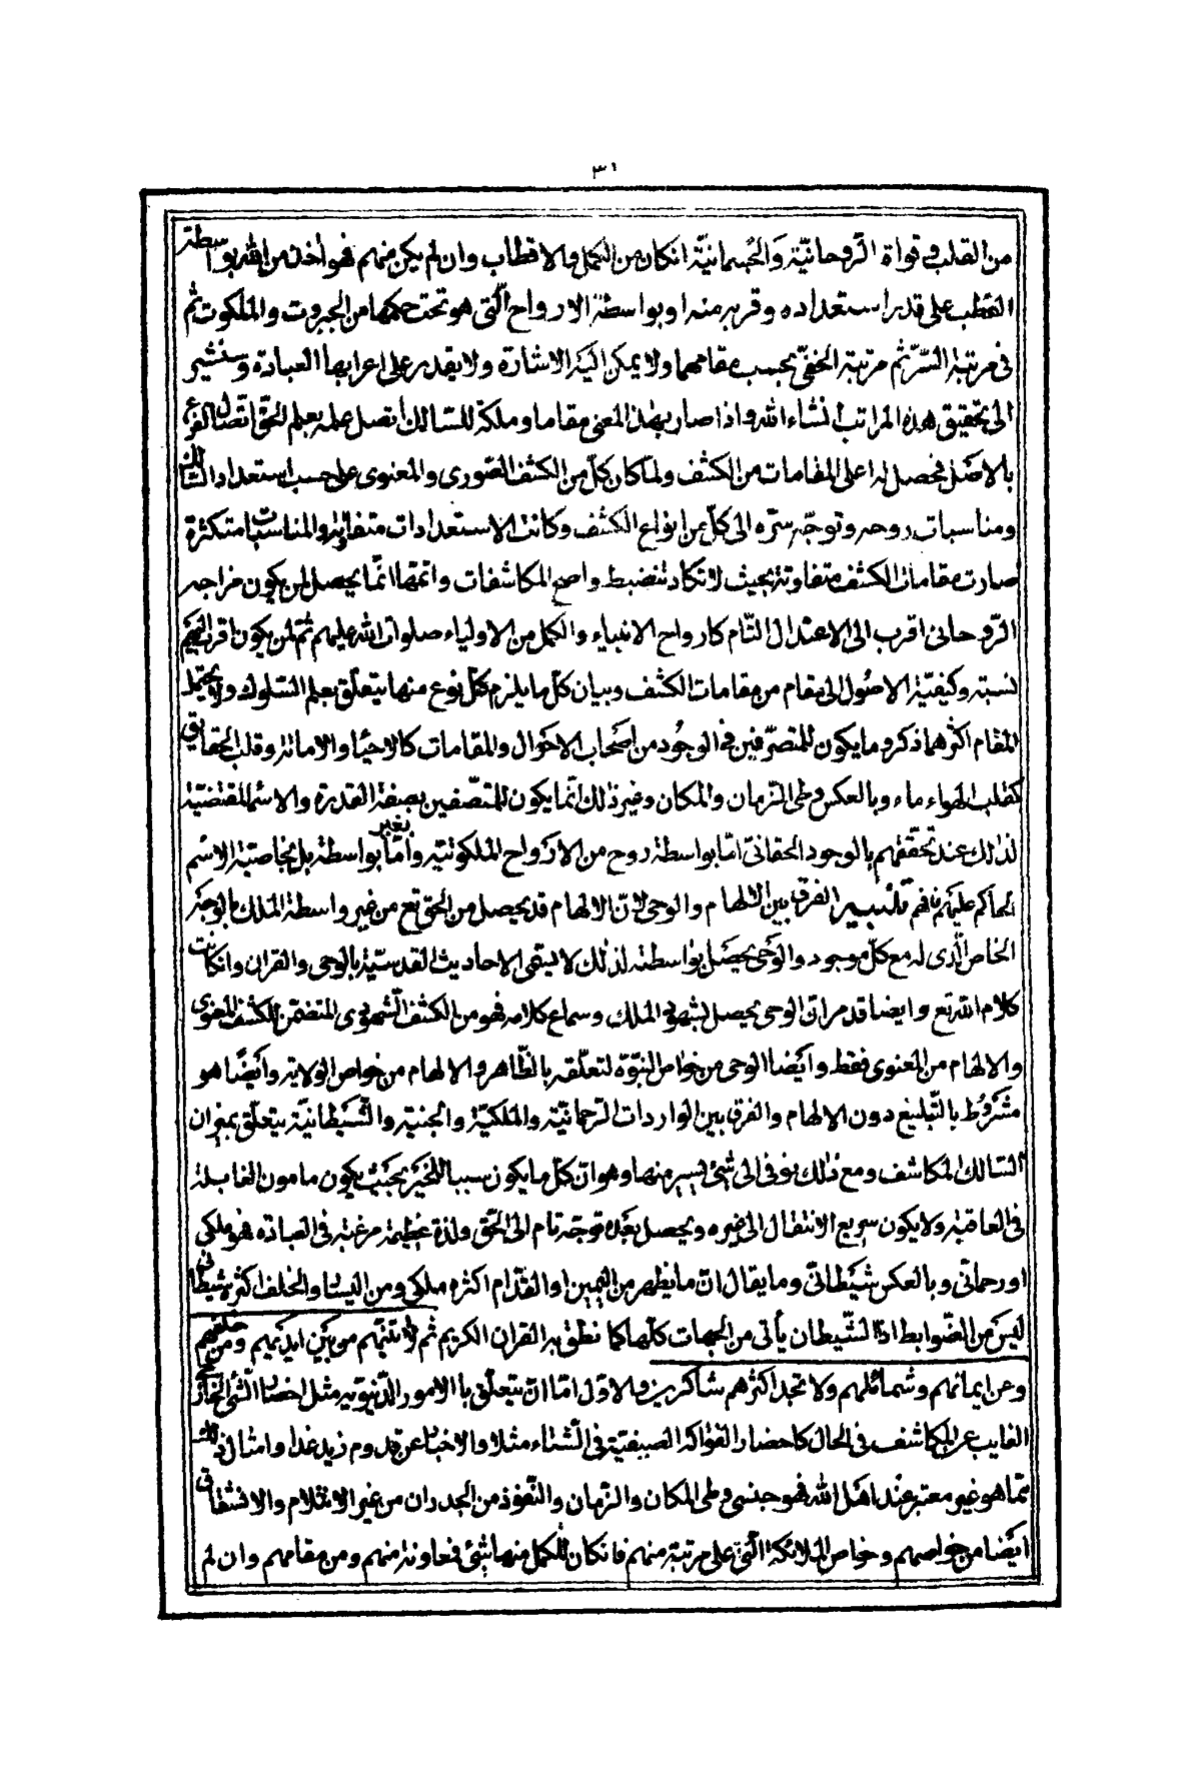 ٣١
من القلب وقواه الرّوحانيّة والجسمانيّة ان كان من الكمل والاقطاب وان لم يكن منهم فهو آخذ من الله بواسطة
القطب على قدر استعداده وقربه منه او بواسطة الارواح الّتى هو تحت حكمها من الجبروت والملكوت ثم
فى مرتبة السّرّ ثم مرتبة الخفىّ بحسب مقامهما ولا يمكن اليه الاشارة ولا يقدر على اعرابها العبارة وسنشير
الى تحقيق هذه المراتب انشاء الله واذا صار هذا المعنى مقاما وملكة للسّالك اتّصل علمه بعلم الحقّ اتّصال الفرع
بالاصل فحصل له اعلى المقامات من الكشف ولمّا كان كلّ من الكشف الصّورى والمعنوى على حسب استعداد السّالك
ومناسبات روحه وتوجّه سرّه الى كلّ من انواع الكشف وكانت الاستعدادات متفاوتة والمناسبات متكثرة
صارت مقامات الكشف متفاوتة بحيث لا تكاد تنضبط واصح المكاشفات واتمّها انّما يحصل لمن يكون مزاجه
الرّوحانى اقرب الى الاعتدال التّام كارواح الانبياء والكمل من الاولياء صلوات الله عليهم ثم لمن يكون اقرب اليهم
نسبة وكيفيّة الوصول الى مقام من مقامات الكشف وبيان كلّ ما يلزم كلّ نوع منها يتعلّق بعلم السّلوك ولا يحتمل
المقام اكثر مما ذكر وما يكون للمتصرّفين فى الوجود من اصحاب الاحوال والمقامات كالاحياء والاماتة وقلب الحقايق
كقلب الهواء ماء وبالعكس وطى الزمان والمكان وغير ذلك انّما يكون للمتّصفين بصفة القدرة والاسماء المقتضية
لذلك عند تحققهم بالوجود الحقانىّ امّا بواسطة روح من الارواح الملكوتيّة وامّا بغير واسطة بل بخاصيّة الاسم
الحاكم عليهم فافهم تنبيه الفرق بين الالهام والوحى لانّ الالهام قد يحصل من الحق تع من غير واسطة الملك بالوجه
الخاص الّذى له مع كلّ موجود والوحى يحصل بواسطته لذلك لا يسمّى الاحاديث القدسيّة بالوحى والقران وان كانت
كلام الله تع وايضا قد مر ان الوحى يحصل بشهود الملك وسماع كلامه فهو من الكشف الشّهودى المتضمّن للكشف المعنوى
والالهام من المعنوى فقط وايضا الوحى من خواص النبوّة لتعلّقه بالظّاهر والالهام من خواص الولاية وايضا هو
مشروط بالتّبليغ دون الالهام والفرق بين الواردات الرّحمانيّة والملكيّة والجنية والشّيطانيّة يتعلّق بميزان
السّالك المكاشف ومع ذلك نومى الى شئ يسير منها وهو ان كلّ ما يكون سببا للخير بحيث يكون مامون الغايلة
فى العاقبة ولا يكون سريع الانتقال الى غيره ويحصل بعده توجّه تام الى الحق ولذة عظيمة مرغبة فى العبادة فهو ملكى
او رحمانى وبالعكس شيطانى وما يقال ان ما يظهر من اليمين او القدّام اكثره ملكى ومن اليسار والخلف اكثره شيطانى
ليس من الضّوابط اذ الشّيطان يأتى من الجهات كلّها كما نطق به القران الكريم ثم لاتينّهم من بين ايديهم ومن خلفهم
وعن ايمانهم وشمائلهم ولا تجد اكثرهم شاكرين والاوّل امّا ان يتعلّق بالامور الدّنيويّة مثل احضار الشّى الخارجى
الغايب عن المكاشف فى الحال كاحضار الفواكه الصيفيّة فى الشتاء مثلا والاخبار عن قدوم زيد غدا وامثال ذلك
ممّا هو غير معتبر عند اهل الله فهو جنّى وطى المكان والزمان والنّفوذ من الجدران من غير الانثلام والانشقاق
ايضا من خواصهم وخواص الملائكة الّتى على مرتبة منهم فان كان للكمل منها شئ فمعاونة منهم ومن مقامهم وان لم